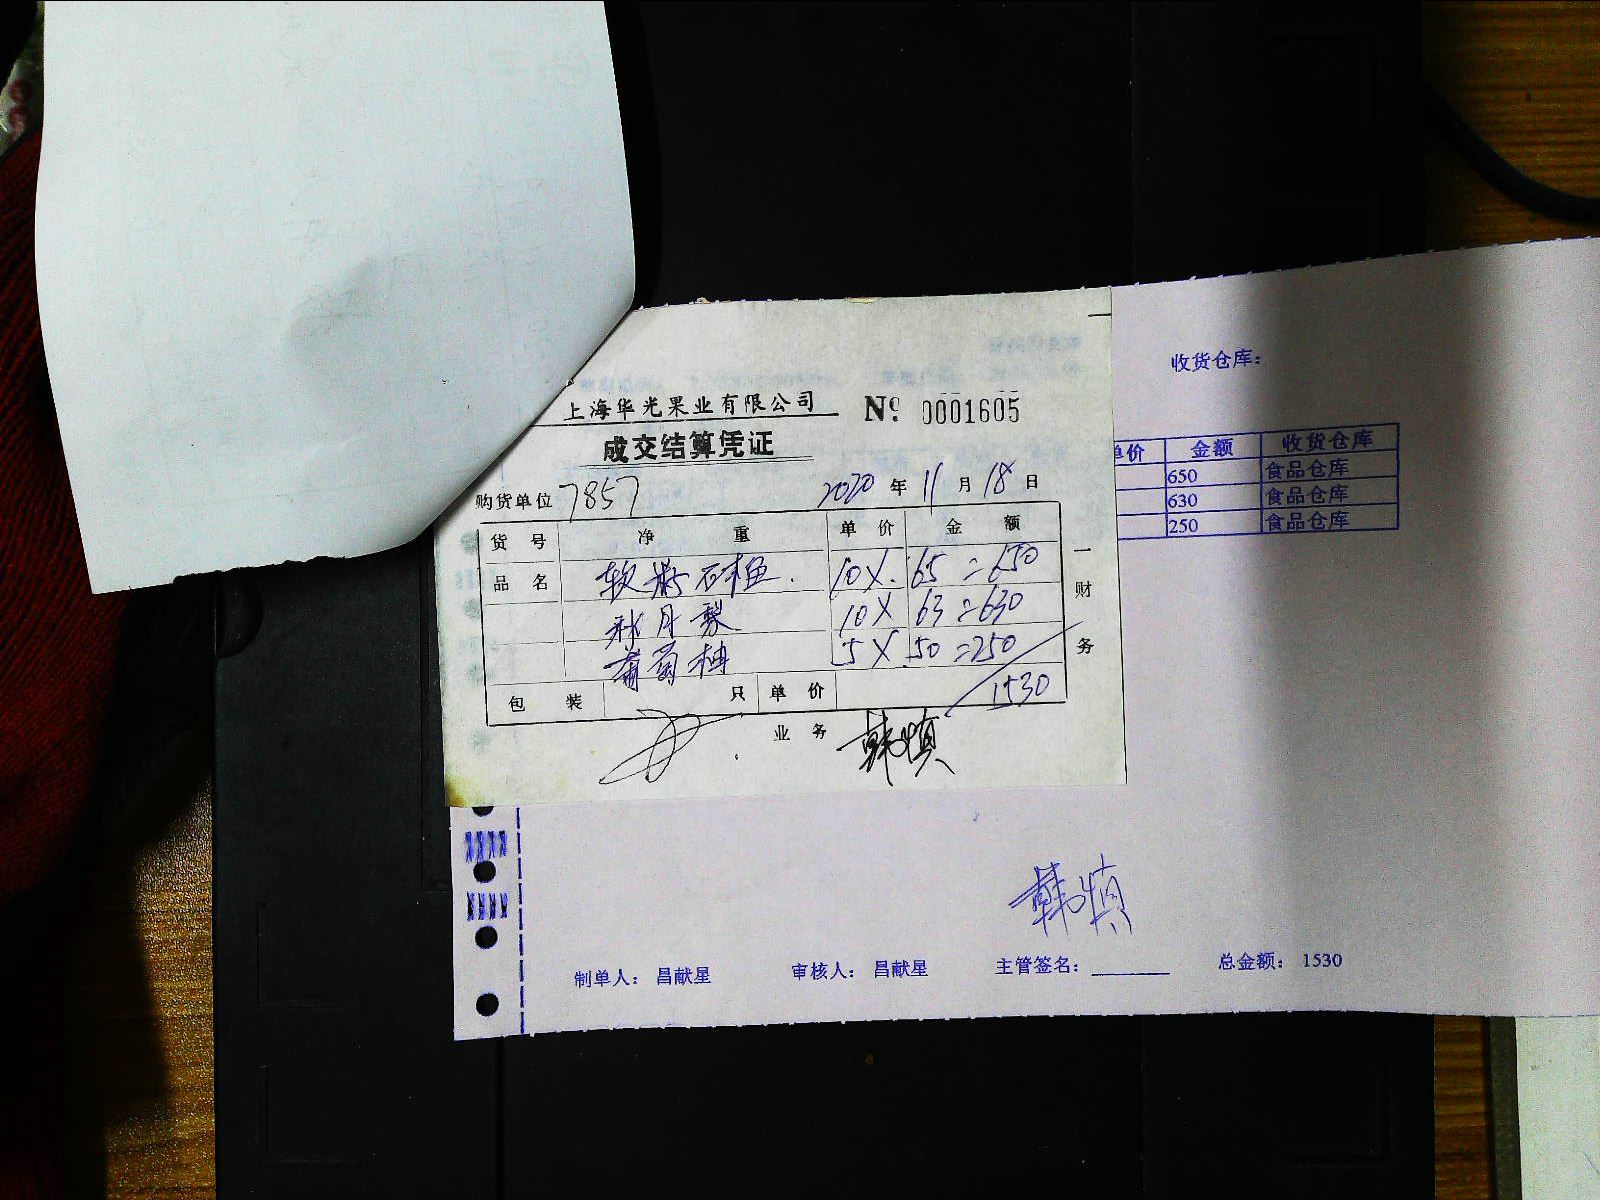 上海华光果业有限公司 №: 0001605
成交结算凭证
购货单位 7857 2020 年 11 月 18 日
货号 净重 单价 金额
品名 软籽石榴. 10X. 65=650
秋月梨 10X 63=630
葡萄柚 5X 50=250
包装 只 单价 1530
业务 韩慎
一财务
收货仓库:
单价 金额 收货仓库
650 食品仓库
630 食品仓库
250 食品仓库
韩慎
制单人: 昌献星 审核人: 昌献星 主管签名: 总金额: 1530